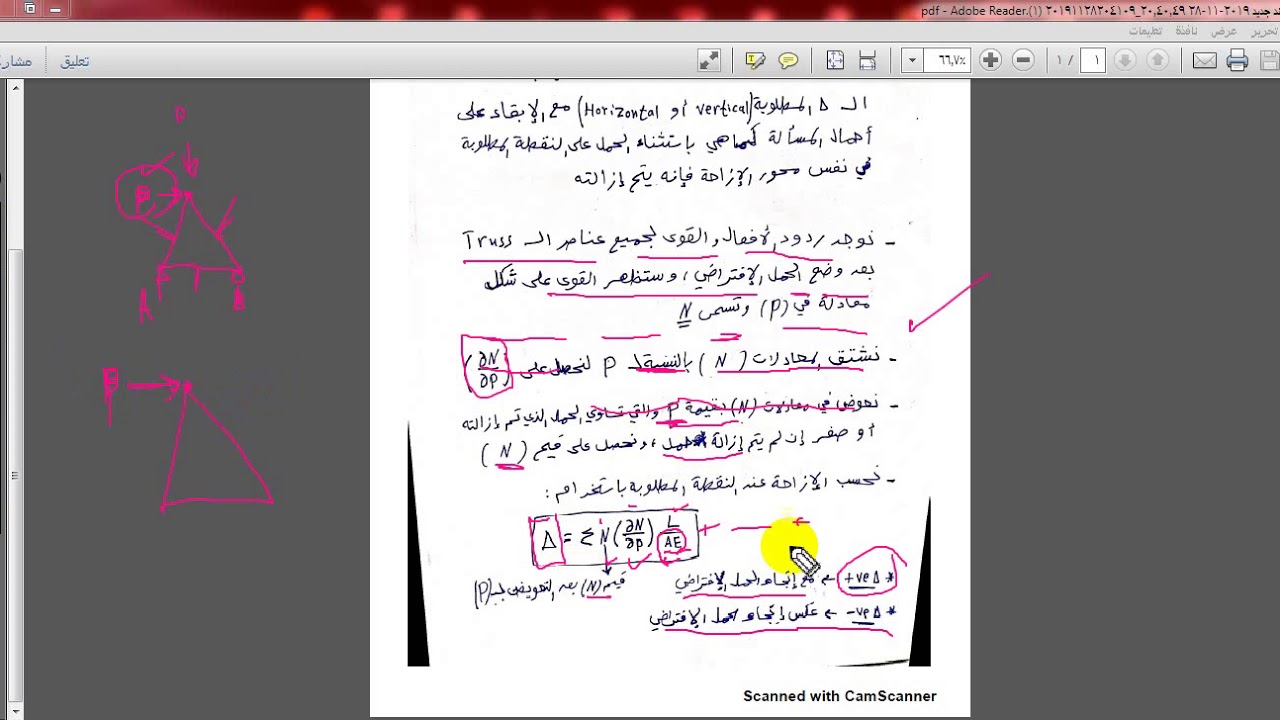 ند جديد ٢٠١٩-١١-٢٨ ٢٠,٤٠,٤٩_٢٠١٩١١٢٨٢٠٤١٠٩ (١).pdf - Adobe Reader
تحرير عرض نافذة تعليمات
١ / ١
٦٦,٧%
تعليق
مشارك
الـ Δ المطلوبة (vertical أو Horizontal) مع الإبقاء على
أحمال المسألة كما هي باستثناء الحمل على النقطة المطلوبة
في نفس محور الإزاحة فإنه يتم إزالته
- نوجد ردود الأفعال والقوى لجميع عناصر الـ Truss
بعد وضع الحمل الإفتراضي، وستظهر القوى على شكل
معادلة في (P) وتسمى N
- نشتق المعادلات (N) بالنسبة لـ P لنحصل على (∂N/∂P)
- نعوض في معادلات (N) بقيمة P والتي تساوي الحمل الذي تم إزالته
أو صفر إن لم يتم إزالة حمل، ونحصل على قيم (N)
- نحسب الإزاحة عند النقطة المطلوبة باستخدام:
Δ = Σ N (∂N/∂P) L/AE
قيم (N) بعد التعويض لـ (P)
* +ve Δ ← مع إتجاه الحمل الإفتراضي
* -ve Δ ← عكس إتجاه الحمل الإفتراضي
P
A
P
Scanned with CamScanner